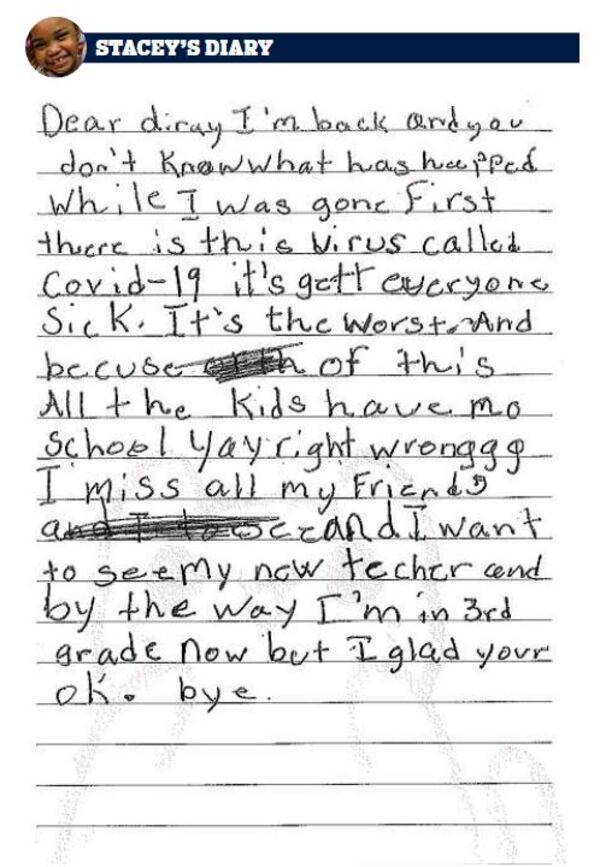 STACEY'S DIARY
Dear diray I'm back and you
don't know what has happed
while I was gone first
there is this virus called
Covid-19 it's gett everyone
Sick. It's the worst. And
becuse of this
All the kids have no
school yay right wronggg
I miss all my Friends
and I want
to see my new techer and
by the way I'm in 3rd
grade now but I glad your
ok. bye.